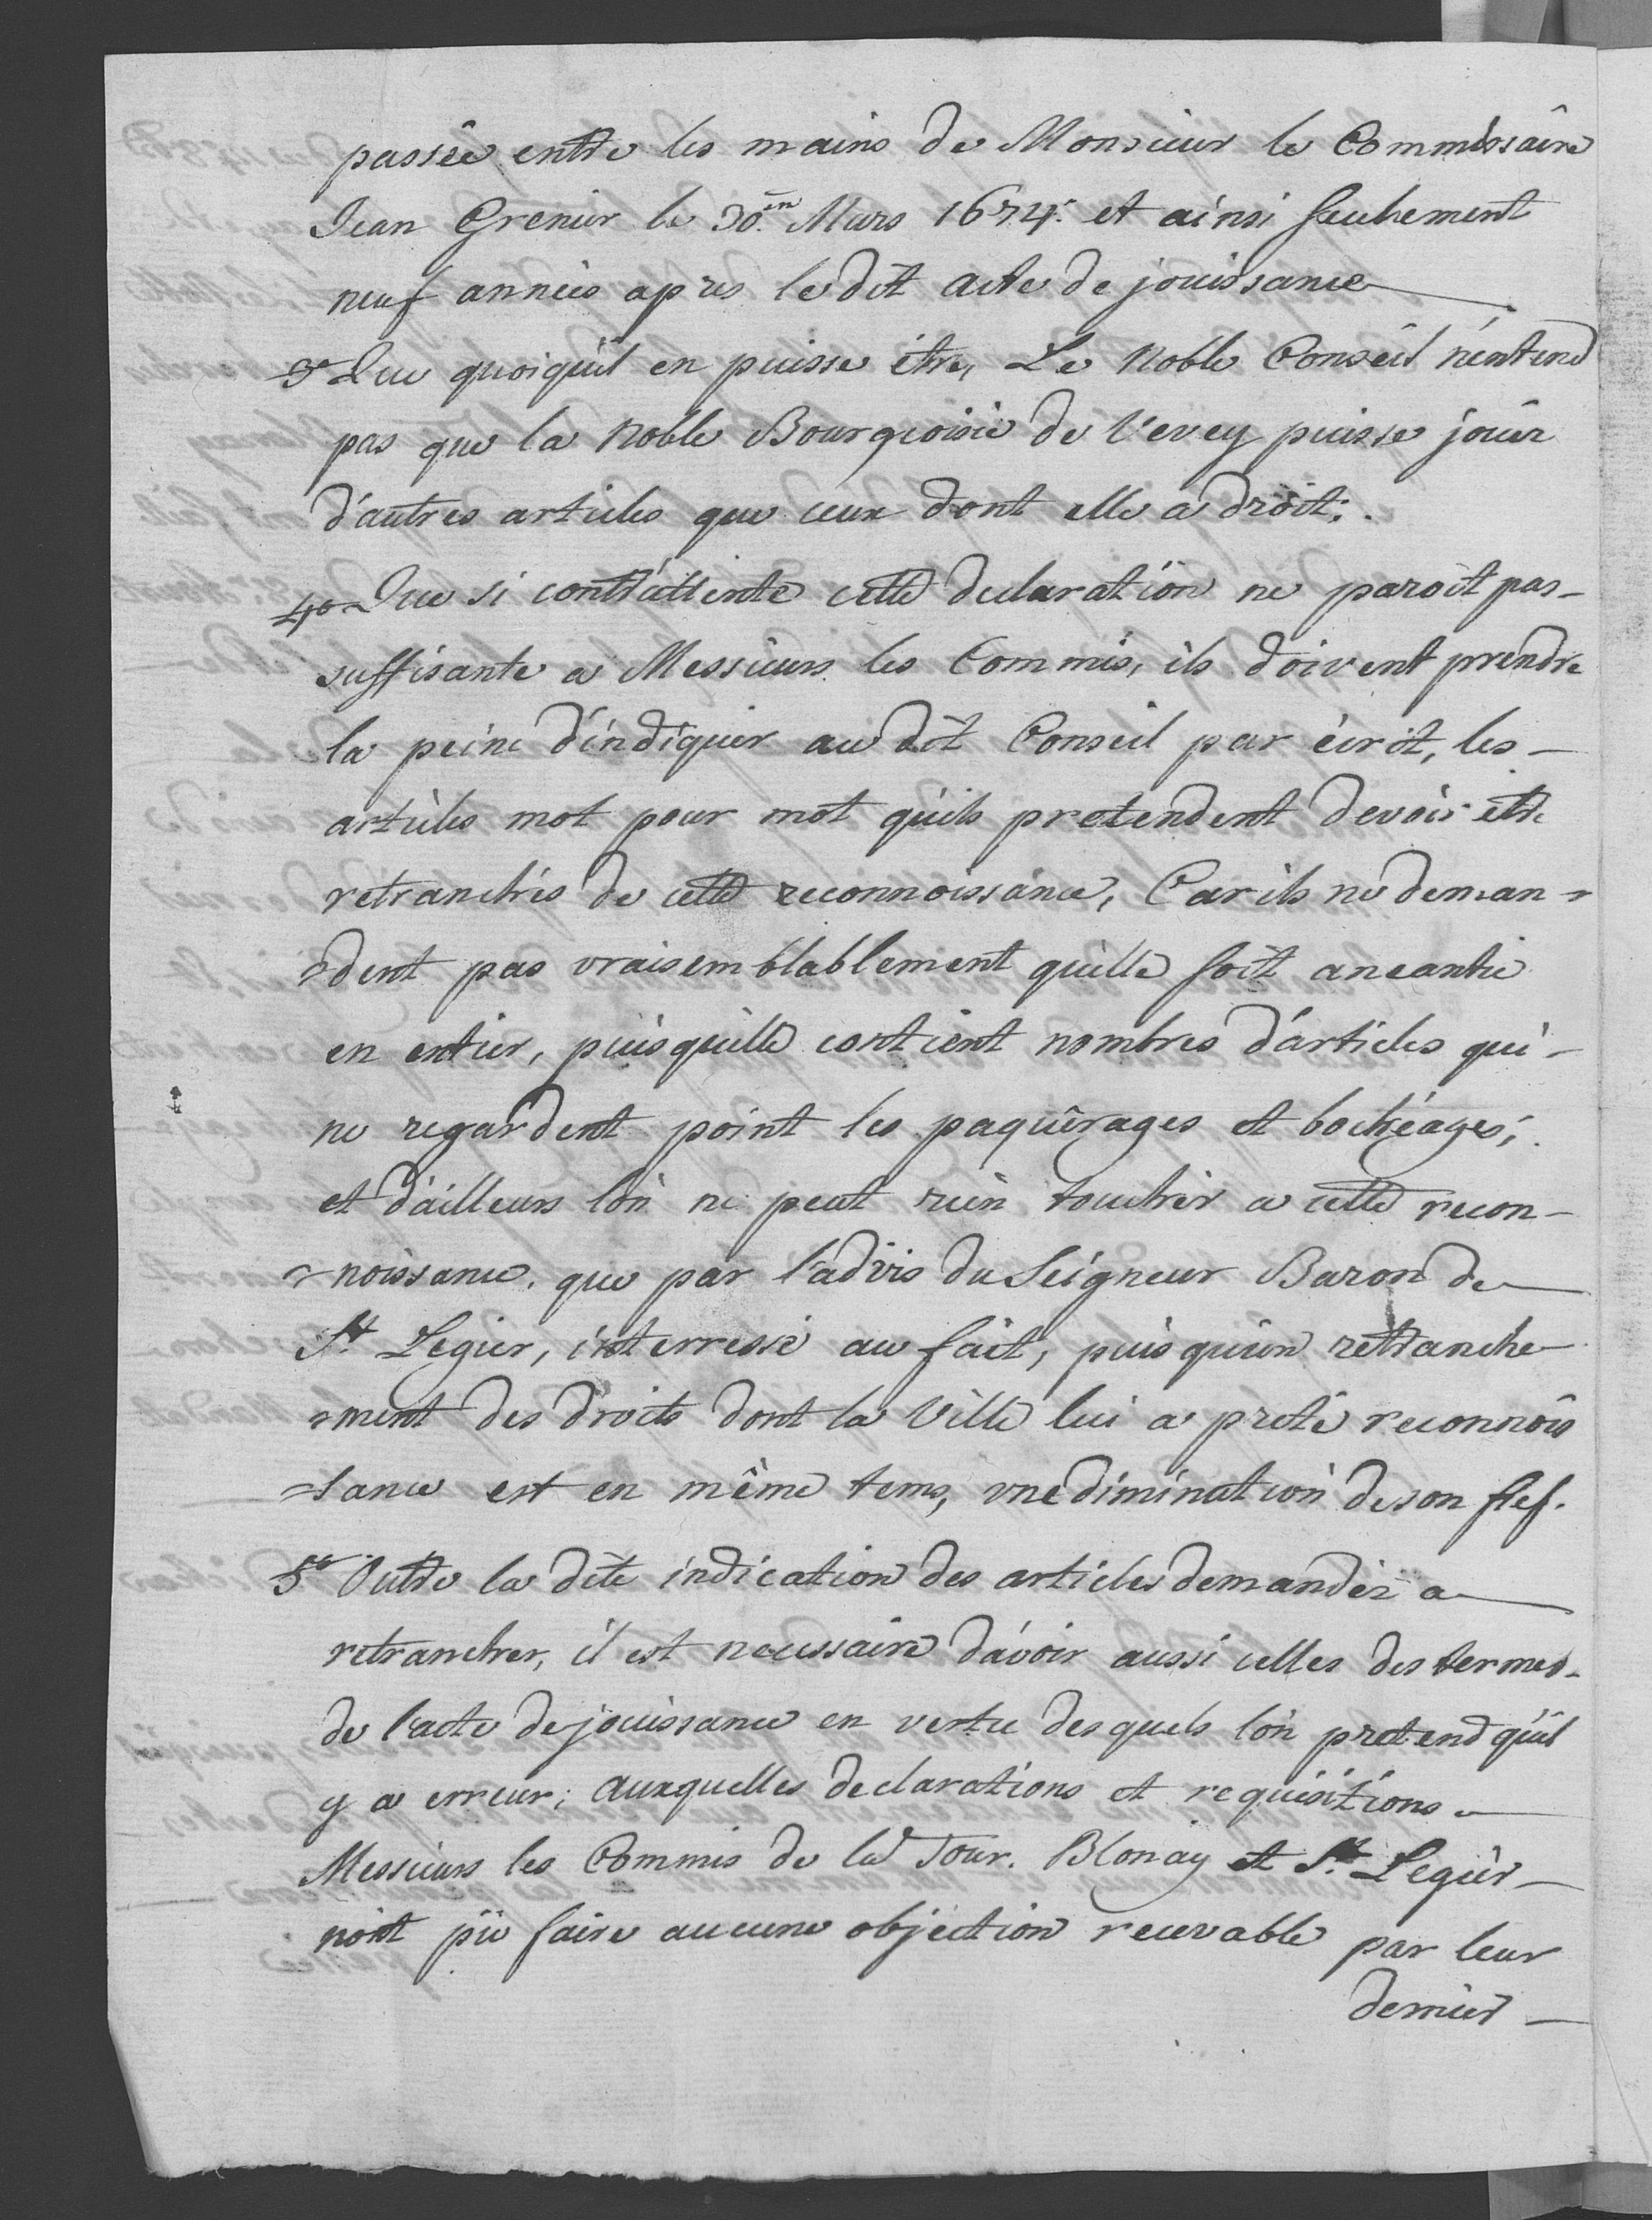 passée entre les mains de Monsieur le Commissaire
Jean Grenier le 30.em Mars 1674. et ainsi seulement
neuf années apres le dit acte de jouissance
3o Que quoiqu'il en puisse être, Le Noble Conseil n'entend
pas que la Noble Bourgeoisie de Vevey puisse jouir
d'autres articles que ceux dont elle a droit;
4o Que si contr'attente cette declaration ne paroit pas
suffisante a Messieurs les Commis, ils doivent prendre
la peine d'indiquer au dit Conseil par écrit, les
articles mot pour mot qu'ils pretendent devoir etre
retranchés de cette reconnoissance, Car ils ne deman=
=dent pas vraisemblablement qu'elle soit aneantie
en entier, puisqu'elle contient nombres d'articles qui
ne regardent point les paquêrages et bochéages;
et d'ailleurs l'on ne peut rien toucher a cette recon=
=noissance, que par l'advis du Seigneur Baron de
St. Legier, interressé au fait, puisqu'un retranche
=ment des droits dont la Ville lui a preté reconnois
=sance est en même tems, une diminution de son fief.
5o Outre la dite indication des articles demandéz a
retrancher, il est necessaire d'avoir aussi celles des termes
de l'acte de jouissance en vertu desquels l'on pretend qu'il
y a erreur; auxquelles declarations et requisitions
Messieurs les Commis de la Tour. Blonay et St. Legier
n'ont pû faire aucune objection recevable par leur
dernier